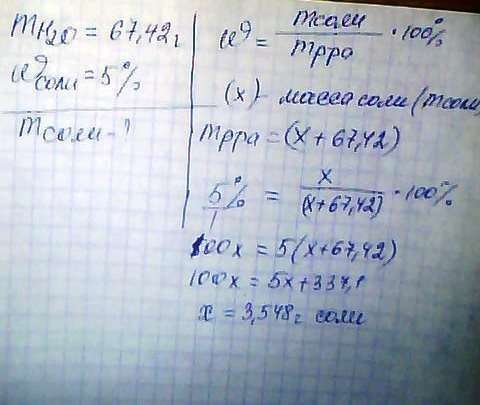 mH2O = 67,42г
ω соли = 5%
mсоли - ?
ω = mсоли / mрра · 100%
(x) - масса соли (mсоли)
mрра = (x + 67,42)
5% / 1 = x / (x+67,42) · 100%
100x = 5(x+67,42)
100x = 5x + 337,1
x = 3,548г соли